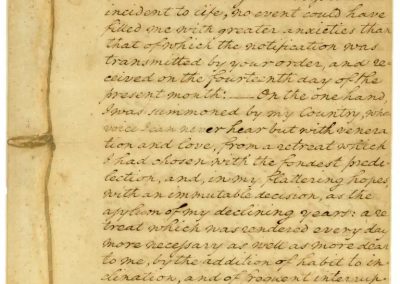 incident to life, no event could have
filled me with greater anxieties than
that of which the notification was
transmitted by your order, and re-
ceived on the fourteenth day of the
present month:— On the one hand,
I was summoned by my Country, whose
voice I can never hear but with venera-
tion and love, from a retreat which
I had chosen with the fondest prede-
lection, and, in my flattering hopes,
with an immutable decision, as the
asylum of my declining years: a re-
treat which was rendered every day
more necessary as well as more dear
to me, by the addition of habit to in-
clination, and of frequent interrup-